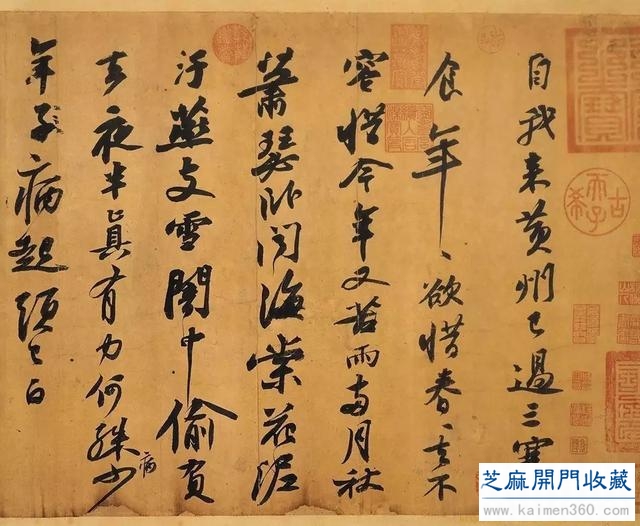 自我来黄州已過三寒
食年〻欲惜春〻去不
容惜今年又苦雨兩月秋
蕭瑟卧聞海棠花泥
汙燕支雪闇中偷負
去夜半真有力何殊少
病
年子病起頭已白
古希天子
芝麻開門收藏
www.kaimen360.com